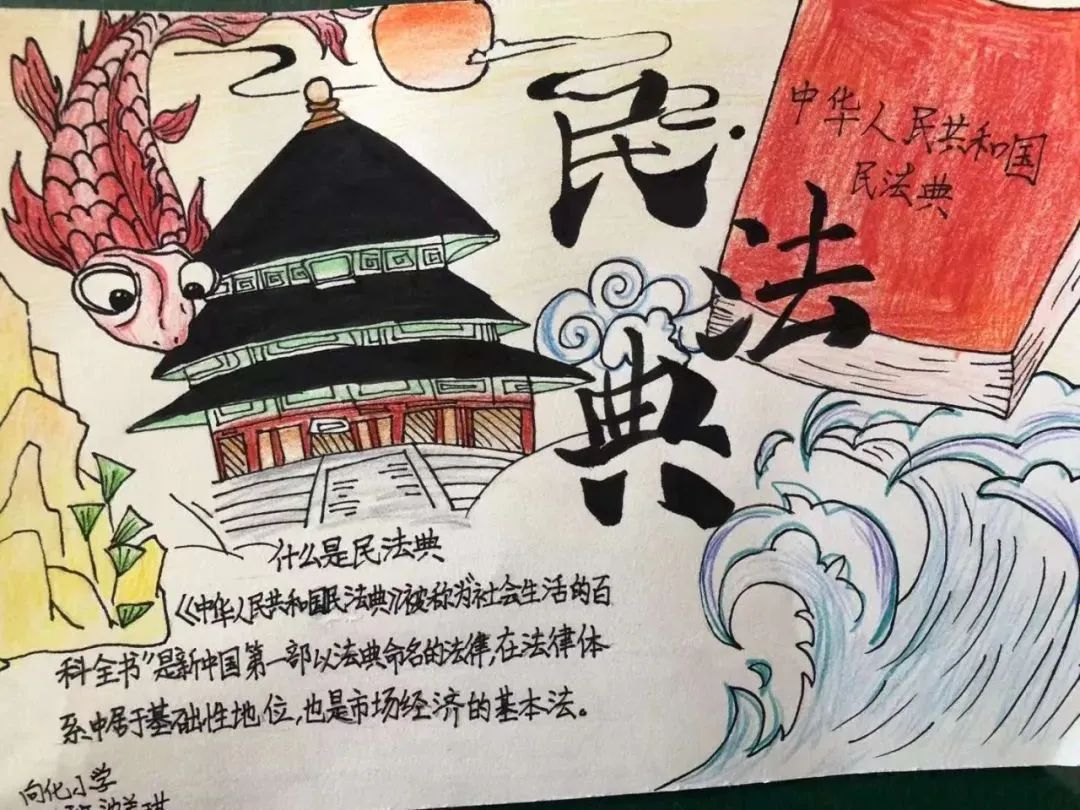 民
法
典
中华人民共和国
民法典
什么是民法典
《中华人民共和国民法典》被称为"社会生活的百
科全书"是新中国第一部以法典命名的法律,在法律体
系中居于基础性地位,也是市场经济的基本法。
向化小学